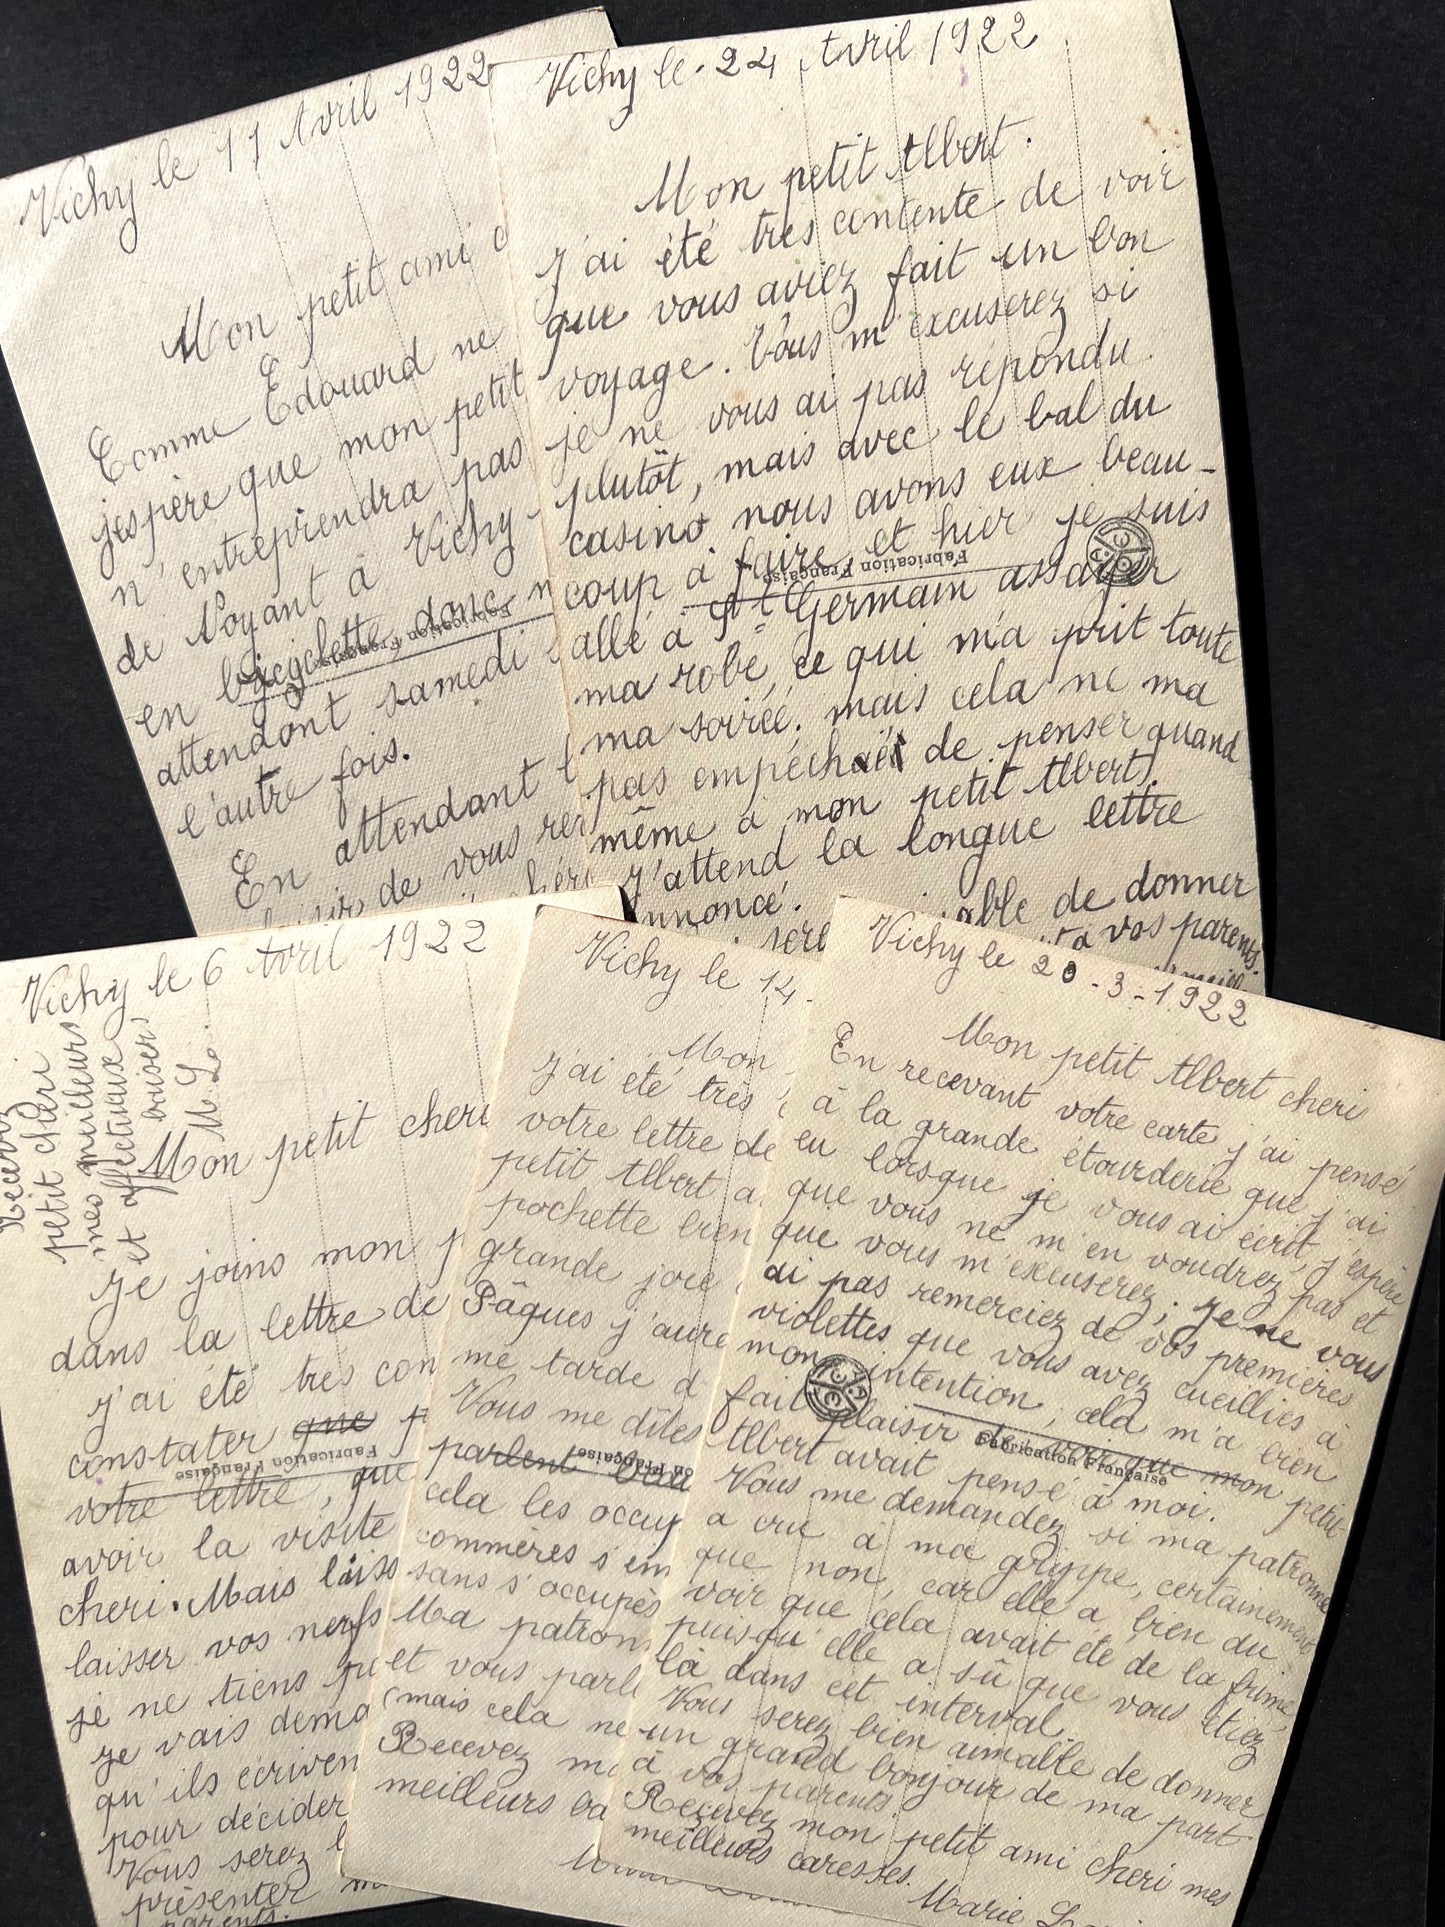 Vichy le 11 Avril 1922
Mon petit ami c
Comme Edouard ne
j'espère que mon petit
n'entreprendra pas
de Noyant à Vichy
en bicyclette donc n
attendont samedi
l'autre fois.
En attendant
de vous re
chéri
Fabrication Française
Vichy le 24 Avril 1922
Mon petit Albert.
J'ai été très contente de voir
que vous aviez fait un bon
voyage. Vous m'excuserez si
je ne vous ai pas répondu
plutôt, mais avec le bal du
casino nous avons eux beau-
coup à faire, et hier je suis
allé à St Germain assayer
ma robe, ce qui m'a prit toute
ma soirée. mais cela ne ma
pas empéchaér de penser quand
même à mon petit Albert.
J'attend la longue lettre
nnoncé.
sere able de donner
a vos parents.
Fabrication Française
Vichy le 6 Avril 1922
Recevez
petit chéri
mes meilleurs
et affectueux
baiser
M. L.
Mon petit cheri
Je joins mon p
dans la lettre de
J'ai été très con
constater que p
votre lettre, que
avoir la visite
cheri. Mais laiss
laisser vos nerfs
je ne tiens pu
Je vais dema
qu'ils écriven
pour décider
Vous serez
présenter m
parents.
Fabrication Française
Vichy le 14
Mon
J'ai été très
votre lettre de
petit Albert a
pochette bien
grande joie
Pâques j'aure
me tarde d
Vous me dîtes
parlent bea
cela les occup
commères s'em
sans s'occupès
Ma patron
et vous parl
(mais cela ne
Recevez m
meilleurs ba
on Française
Vichy le 20-3-1922
Mon petit Albert cheri
En recevant votre carte j'ai pensé
à la grande étourderie que j'ai
eu lorsque je vous ai écrit, j'espère
que vous ne m'en voudrez pas et
que vous m'excuserez; je ne vous
ai pas remerciez de vos premières
violettes que vous avez cueillies à
mon intention, cela m'a bien
fait plaisir de voir que mon petit
Albert avait pensé à moi.
Vous me demandez si ma patronne
a cru à ma grippe, certainement
que non, car elle a bien du
voir que cela avait été de la frime,
puisqu'elle a sû que vous étiez
là dans cet interval.
Vous serez bien aimable de donner
un grand bonjour de ma part
à vos parents.
Recevez mon petit ami cheri mes
meilleurs caresses.
Marie L
Fabrication Française